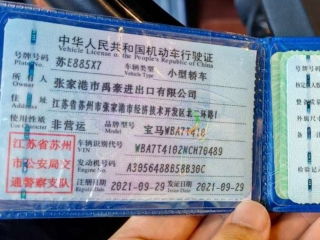 中华人民共和国机动车行驶证
Vehicle License of the People's Republic of China
号牌号码 苏E885XY 车辆类型 小型轿车
Plate No. Vehicle Type
所有人 张家港市禹豪进出口有限公司
住址 江苏省苏州市张家港市经济技术开发区北二环路
使用性质 非营运 品牌型号 宝马WBA7T410
江苏省苏州市公安局交通警察支队
车辆识别代号 WBA7T4102NCH70489
VIN
发动机号码 A3056488B58B30C
注册日期 2021-09-29 发证日期 2021-09-29